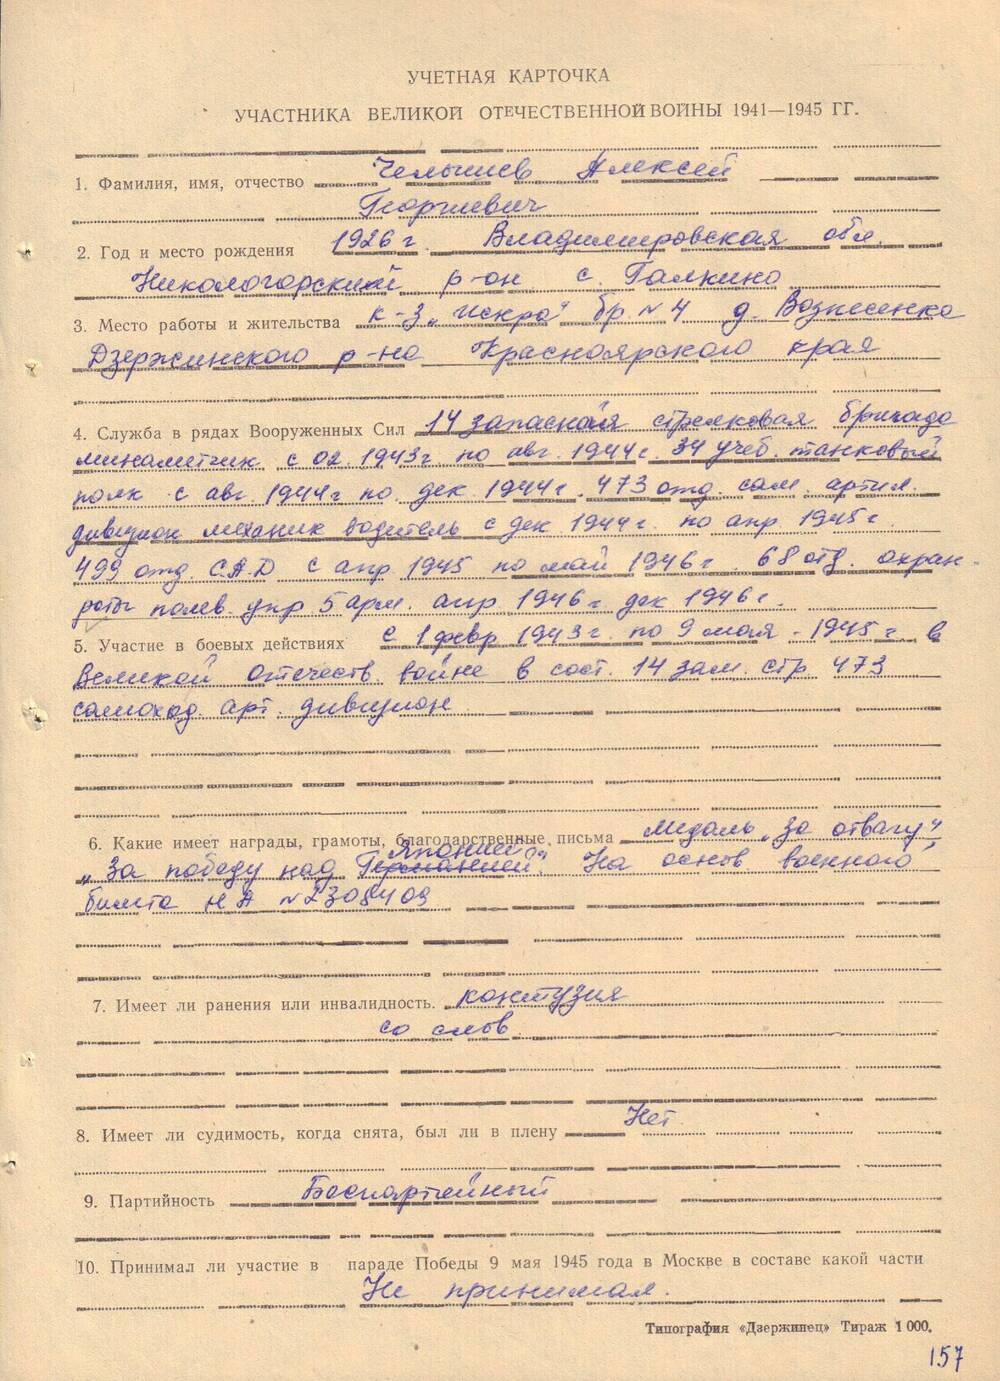 УЧЕТНАЯ КАРТОЧКА
УЧАСТНИКА ВЕЛИКОЙ ОТЕЧЕСТВЕННОЙ ВОЙНЫ 1941—1945 ГГ.
1. Фамилия, имя, отчество Челышев Алексей
Георгиевич
2. Год и место рождения 1926 г. Владимировская обл.
Никологорский р-он с. Галкино
3. Место работы и жительства к-з „Искра" бр. № 4 д. Вознесенка
Дзержинского р-на Красноярского края
4. Служба в рядах Вооруженных Сил 14 запасная стрелковая бригада
минаметчик с 02.1943г. по авг. 1944г. 34 учеб. танковый
полк с авг. 1944г по дек 1944г. 473 отд. сам. артил.
дивизион механик водитель с дек 1944г. по апр. 1945г.
499 отд. С.А.Д с апр. 1945 по май 1946г. 68 отд. охран-
роты полев. упр 5 арм. апр 1946г дек 1946г.
5. Участие в боевых действиях с 1 февр 1943г. по 9 мая - 1945г. в
Великой отечеств. войне в сост. 14 зап. стр 473
самоход. арт. дивизион
6. Какие имеет награды, грамоты, благодарственные письма медаль „за отвагу"
Японией
„За победу над Германией". На основ. военного
билета НД № 2308409
7. Имеет ли ранения или инвалидность. контузия
со слов.
8. Имеет ли судимость, когда снята, был ли в плену Нет
9. Партийность Беспартейный
10. Принимал ли участие в параде Победы 9 мая 1945 года в Москве в составе какой части
Не принимал.
Типография «Дзержинец» Тираж 1 000.
157